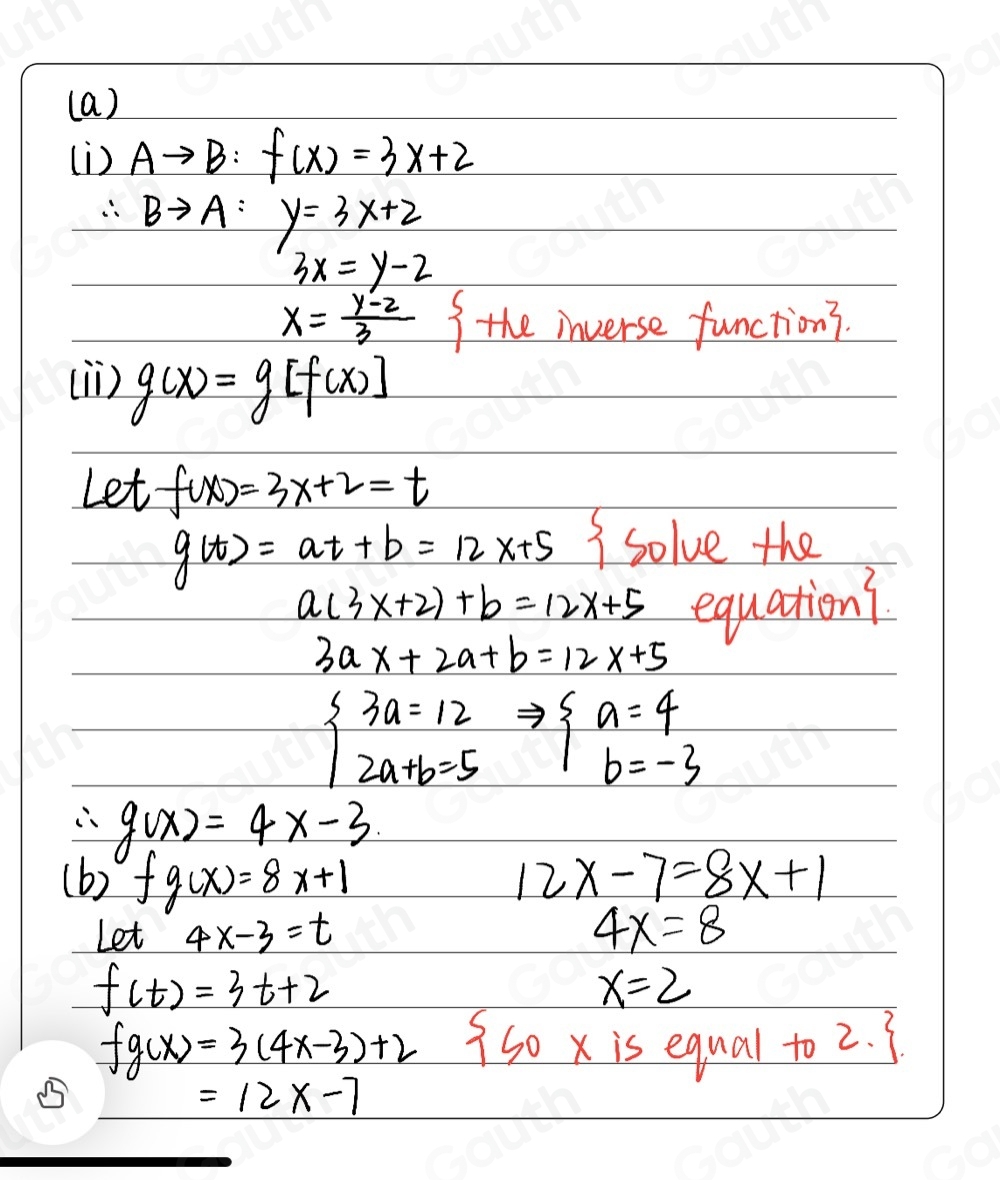 (a)
(i) A→B: f(x) = 3x+2
∴ B→A: y = 3x+2
3x = y-2
x = \frac{y-2}{3} {the inverse function}.
(ii) g(x) = g[f(x)]
Let f(x) = 3x+2 = t
g(t) = at+b = 12x+5 {solve the
a(3x+2)+b = 12x+5 equation}.
3ax+2a+b = 12x+5
{ 3a = 12 ⇒ { a = 4
2a+b=5 b = -3
∴ g(x) = 4x-3.
(b) fg(x) = 8x+1
Let 4x-3 = t
f(t) = 3t+2
fg(x) = 3(4x-3)+2
= 12x-7
12x-7=8x+1
4x=8
x=2
{So x is equal to 2.}.
Gauth